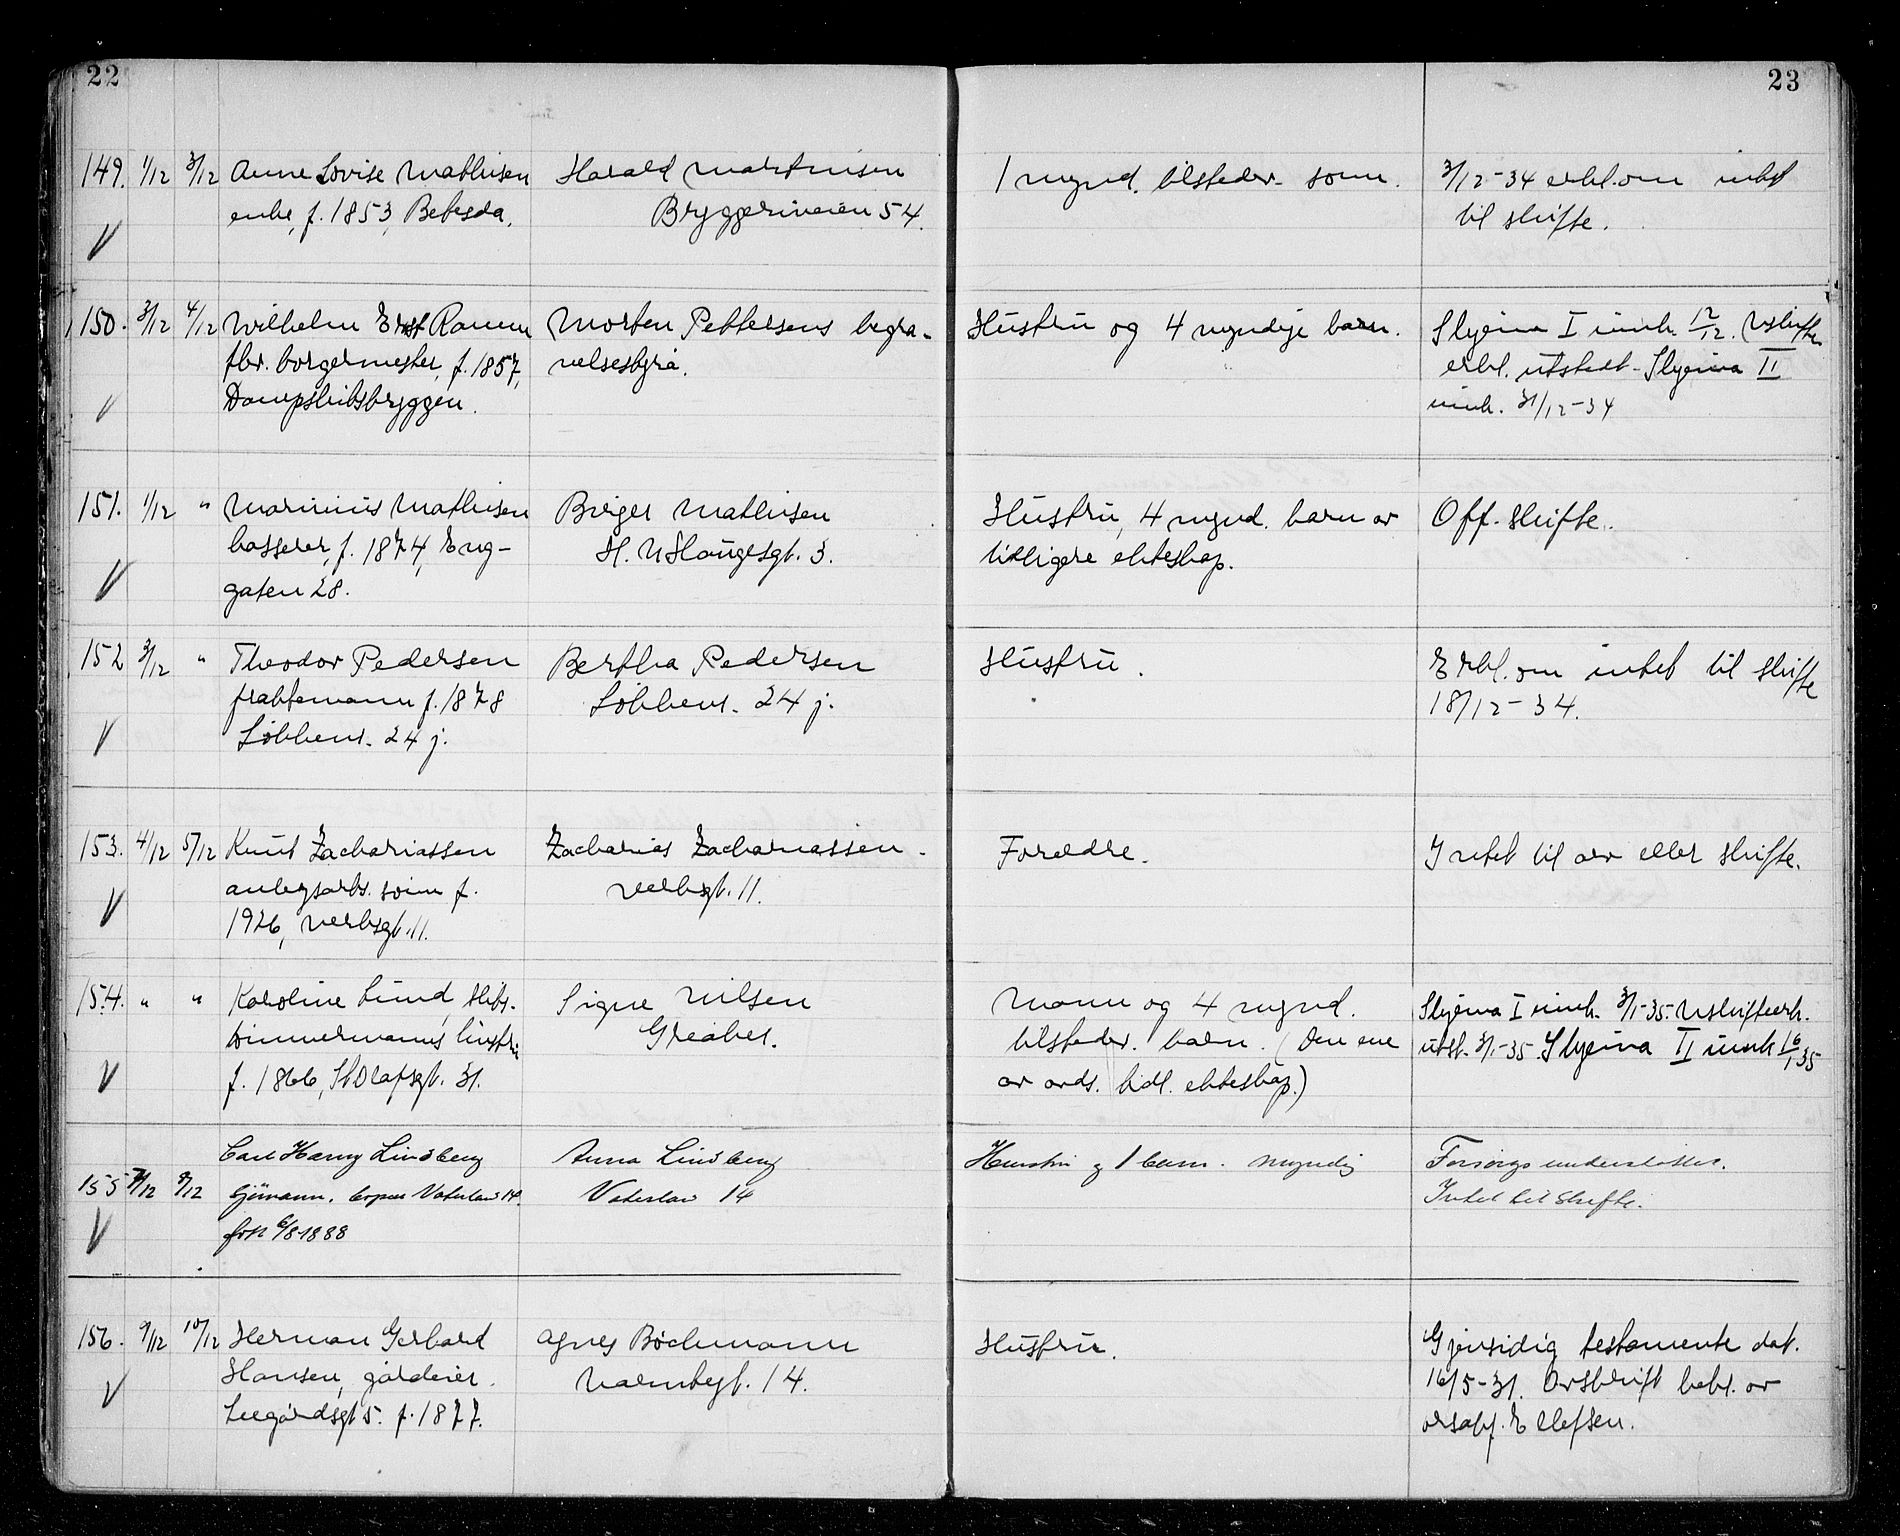 22
23
149. 1/12 3/12 Anne Lovise Mathisen Harald Martinsen 1 mynd. tilsteder. sønn. 3/12-34 erkl. om intet
enke, f. 1853, Betesda. Bryggeriveien 54. til skifte.
150. 3/12 4/12 Wilhelm Ernst Ramm Morten Pettersens begra- Hustru og 4 myndige barn. Skjema I innk. 12/12. Uskifte
fhv. borgermester, f. 1857, velsesbyrå. erkl. utstedt - Skjema II
Dampskibsbryggen. innk. 31/12-34
151. 1/12 " Marinius Mathisen Birger Mathisen Hustru, 4 mynd. barn av Off. skifte.
kasserer, f. 1874, Eng- H. N Haugesgt. 3. tidligere ekteskap.
gaten 28.
152 3/12 " Theodor Pedersen Bertha Pedersen Hustru. Erkl. om intet til skifte
fraktemann f. 1878 Løkkens. 24 j. 18/12-34.
Løkkens. 24 j.
153. 4/12 5/12 Knut Zachariassen Zacharias Zachariassen. Foreldre. Intet til arv eller skifte.
anlegsarb. sønn f. Verksgt. 11.
1926, Verksgt. 11.
154. " " Karoline Lund, skibs- Signe Nilsen Mann og 4 mynd. Skjema I innk. 3/1-35. Uskifteerk.
tømmermanns hustru Greåker. tilsteder. barn. (Den ene utst. 3/1-35. Skjema II innk 16/1 35
f. 1866, St Olafsgt. 31. av avds. tidl. ekteskap.)
Carl Harry Lindberg Anna Lindberg Hustru og 1 barn. myndig Forsorgsunderstøttet.
155 7/12 8/12 sjømann. Vaterland 14. Vaterland 14 Intet til skifte.
født 6/8-1888
156. 9/12 10/12 Herman Gerhard Agnes Böckmann Hustru. Gjensidig testamente dat.
Hansen, gårdeier. 14. 16/5-31. Avskrift bekr. av
Leegårdsgt 5. f. 1877. o.r.sakf. Ellefsen.